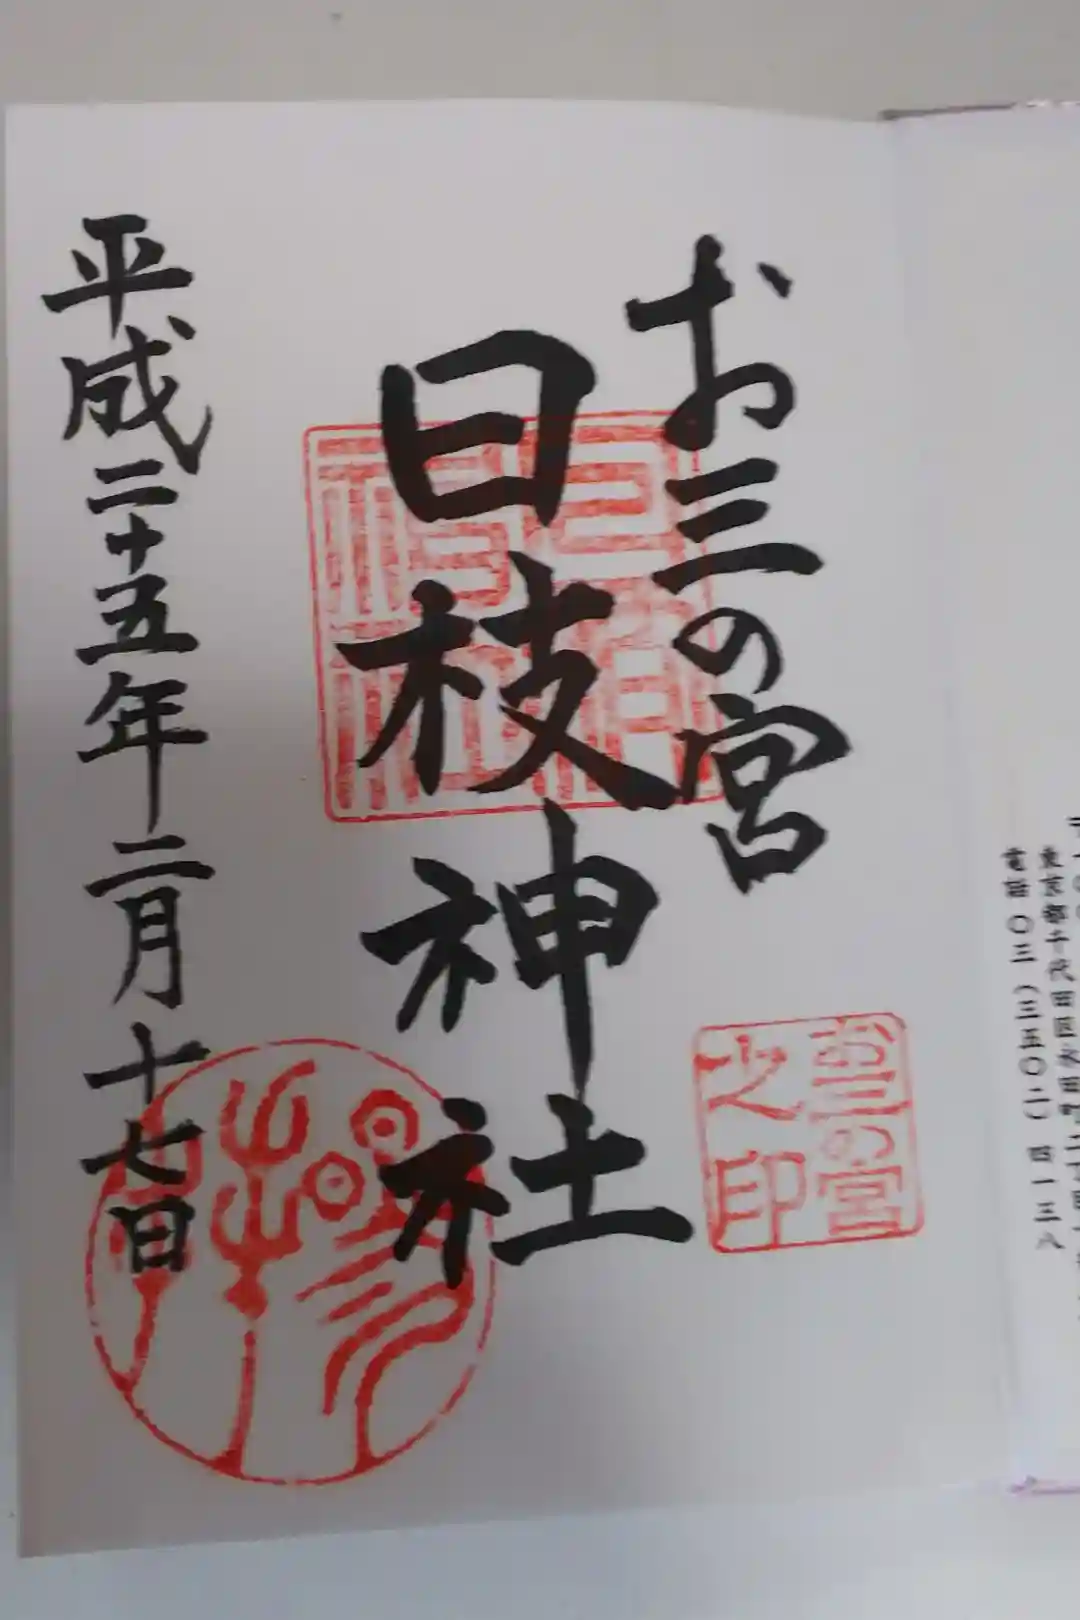 東京都千代田区永田町二丁目
電話〇三（三五〇二）四一三八
お三の宮
日枝神社
お三の宮
之印
平成二十五年二月十七日